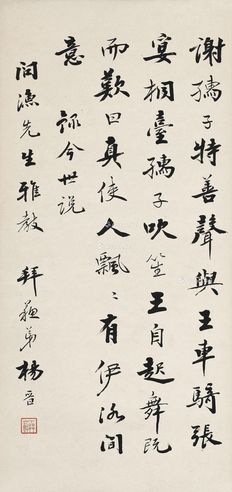 謝孺子特善聲與王車騎張
宴桐臺孺子吹笙王自起舞既
而歎曰真使人飄〻有伊洛間
意 録今世説
问漁先生雅教 弟楊晋